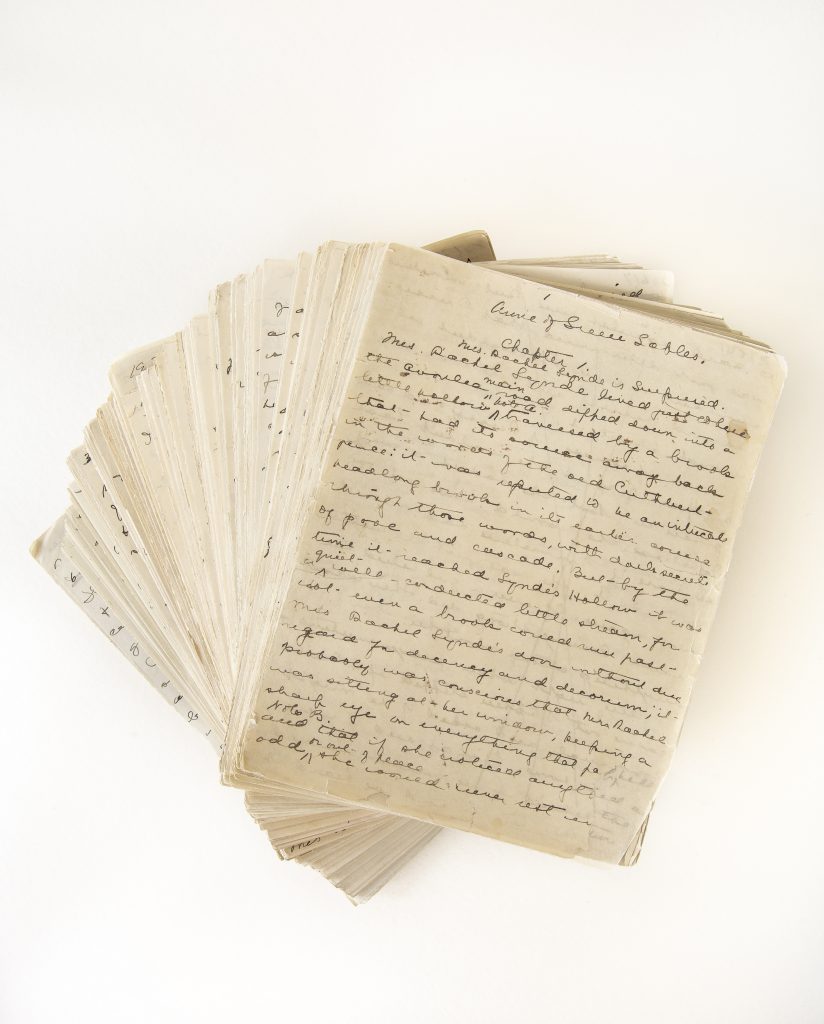 1
Anne of Green Gables.
Chapter 1.
Mrs. Rachel Lynde is Surprised.
Mrs. Rachel Lynde lived just where
the Avonlea main road dipped down into a
little hollow traversed by a brook
that had its source away back
in the woods of the old Cuthbert
place; it was reputed to be an intricate
headlong brook in its earlier course
through those woods, with dark secrets
of pool and cascade. But by the
time it reached Lynde's Hollow it was
a quiet well-conducted little stream, for
not even a brook could run past
Mrs Rachel Lynde's door without due
regard for decency and decorum; it
probably was conscious that Mrs Rachel
was sitting at her window, keeping a
sharp eye on everything that
Note B.
and that if she noticed anything
odd or out of place she would never rest
195